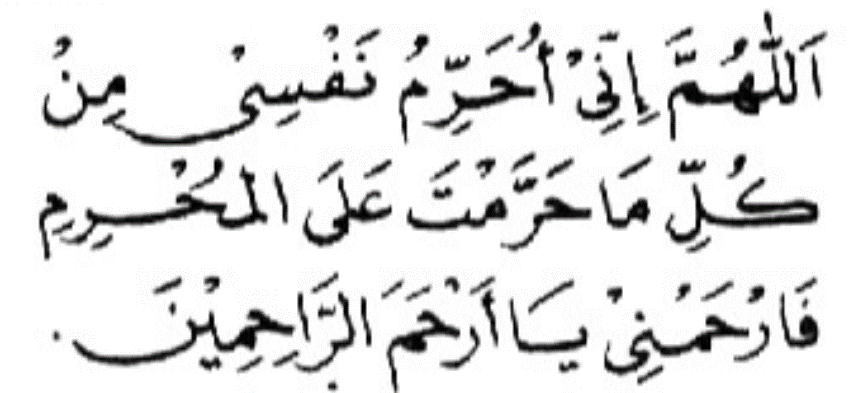 اَللّٰهُمَّ اِنِّيْ أُحَرِّمُ نَفْسِيْ مِنْ
كُلِّ مَا حَرَّمْتَ عَلَى الْمُحْرِمِ
فَارْحَمْنِيْ يَا أَرْحَمَ الرَّاحِمِيْنَ.